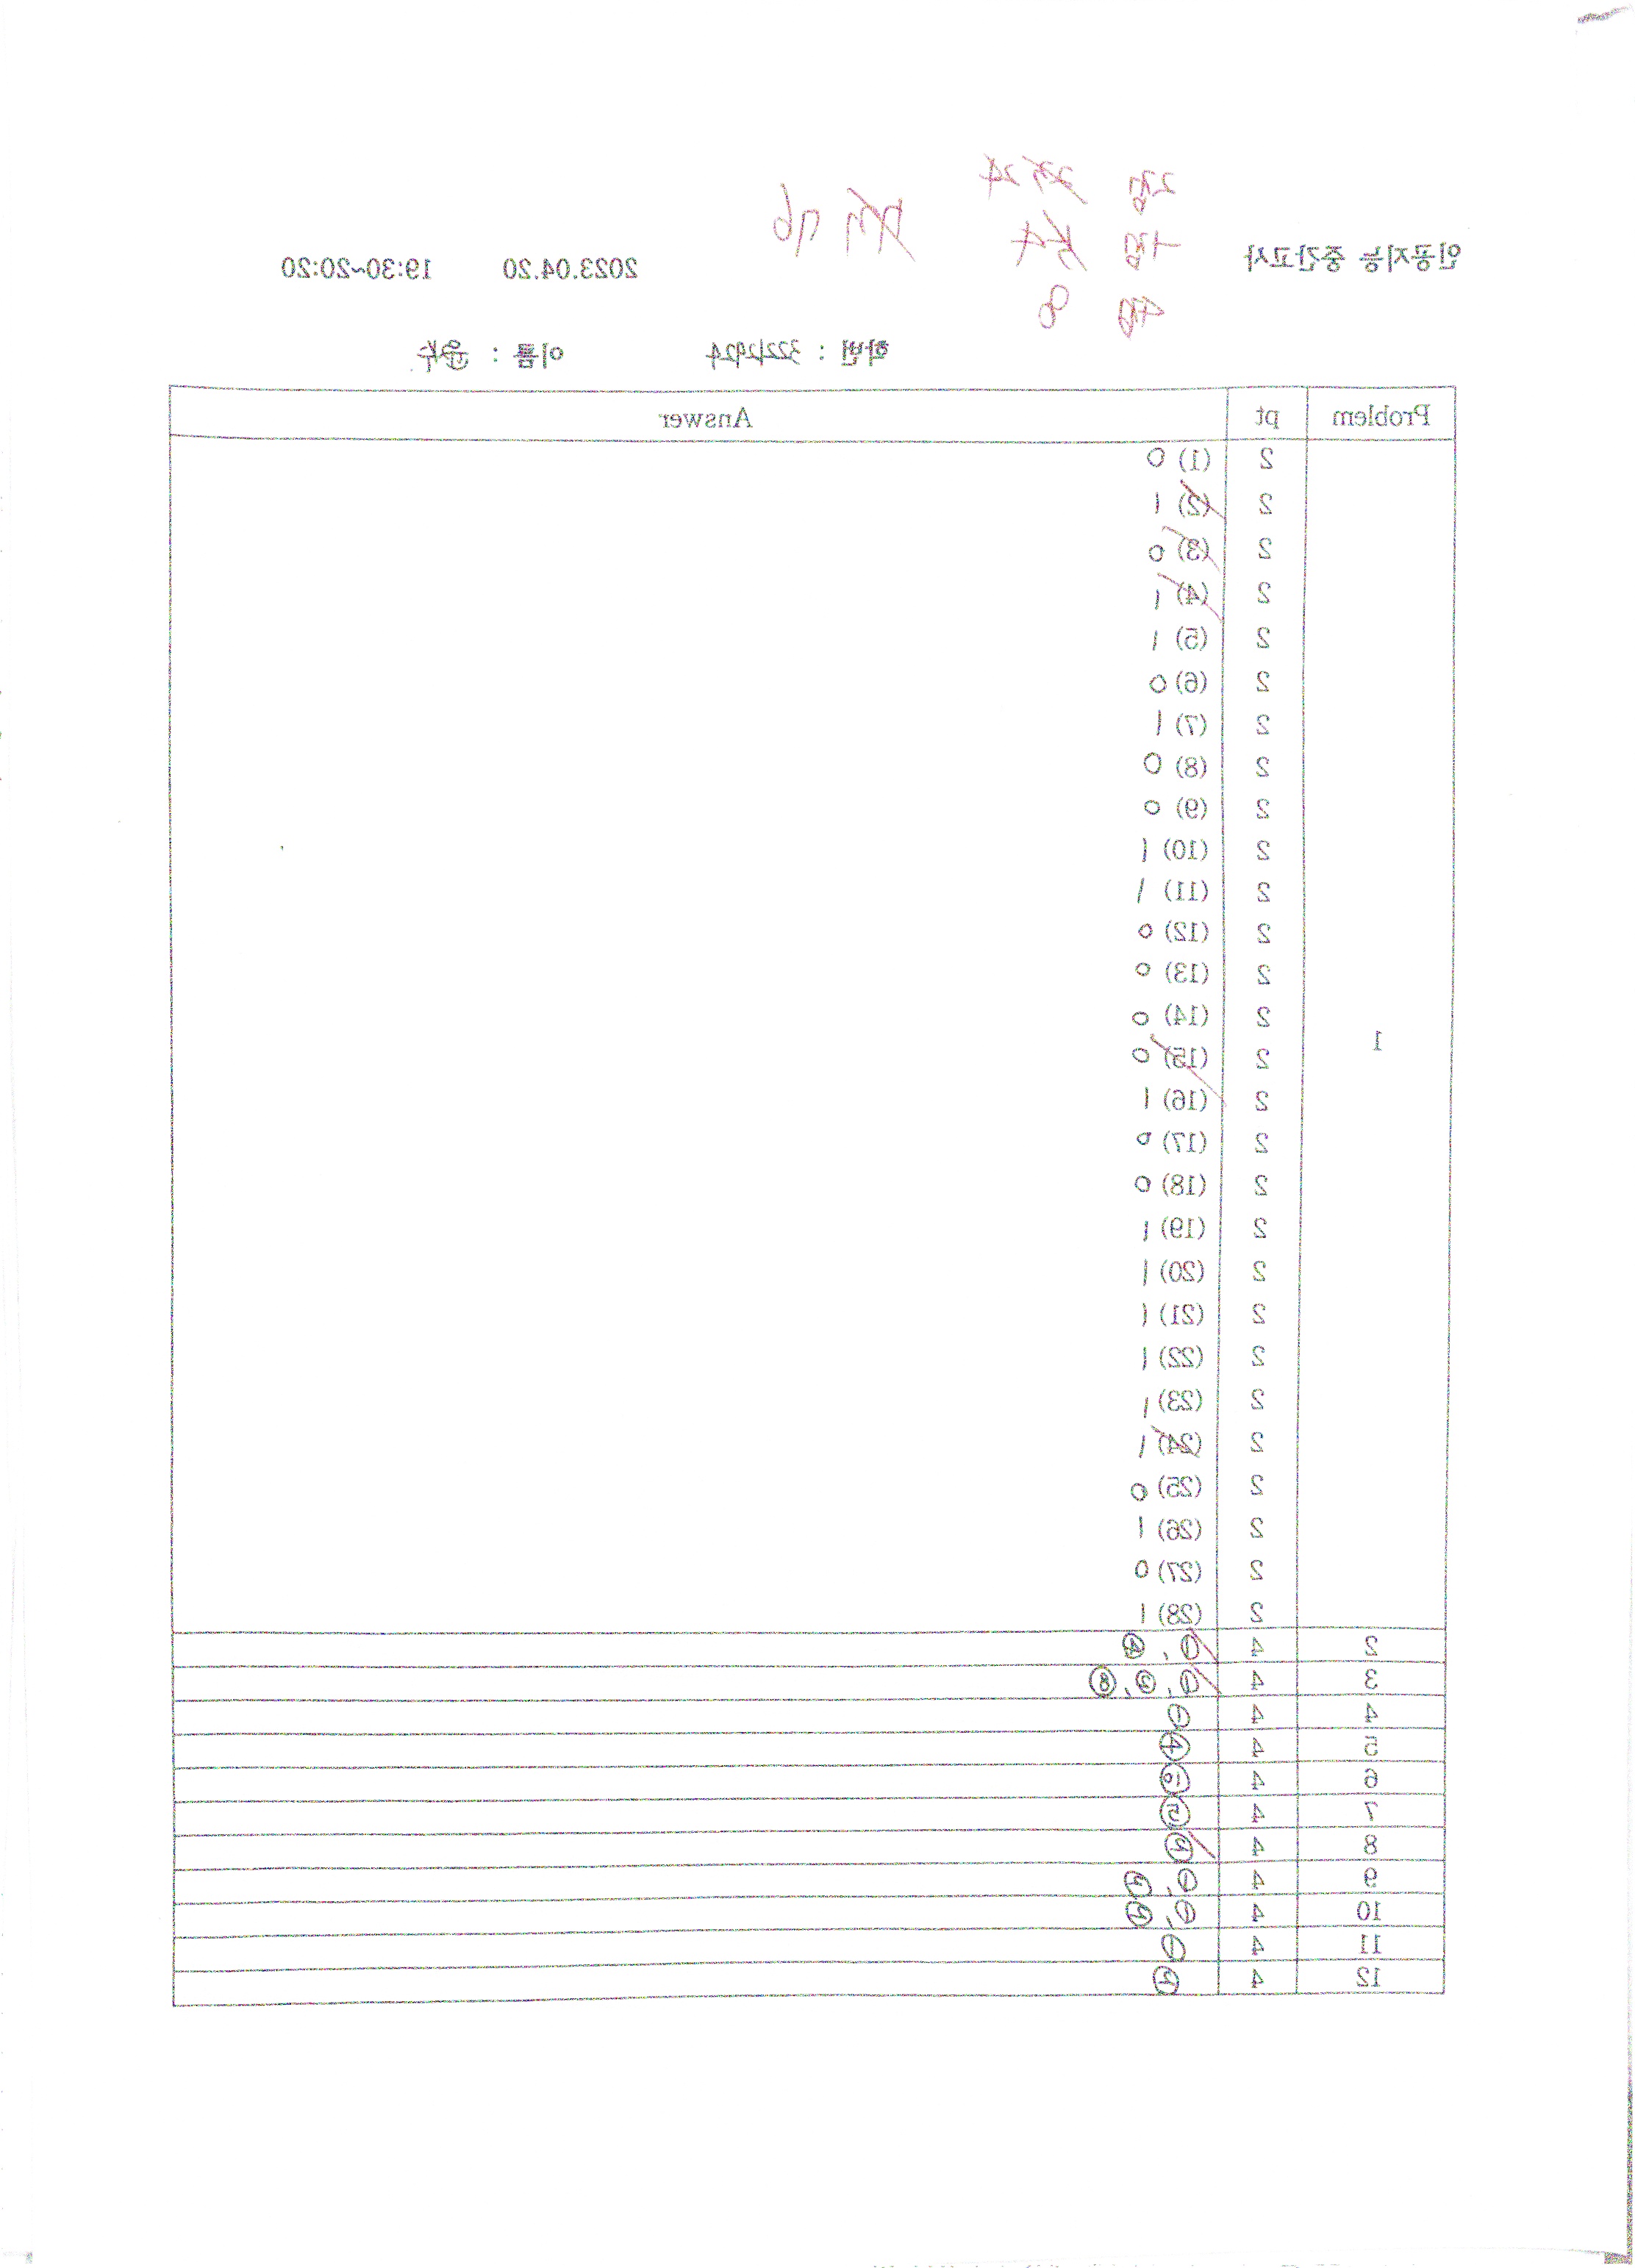 2점 25 24
1점 5 4
4점 8
75 76
인공지능 중간고사 2023.04.20 19:30~20:20
학번 : 이름 :
Problem pt Answer
1
2 (1) 0
2 (2) 1
2 (3) 0
2 (4) 1
2 (5) 1
2 (6) 0
2 (7) 1
2 (8) 0
2 (9) 0
2 (10) 1
2 (11) 1
2 (12) 0
2 (13) 0
2 (14) 0
2 (15) 0
2 (16) 1
2 (17) 0
2 (18) 0
2 (19) 1
2 (20) 1
2 (21) 1
2 (22) 1
2 (23) 1
2 (24) 1
2 (25) 0
2 (26) 1
2 (27) 0
2 (28) 1
2 4 ①, ④
3 4 ①, ⑧
4 4 ①
5 4 ④
6 4
7 4 ⑤
8 4
9 4 ①,
10 4 ①,
11 4 ①
12 4